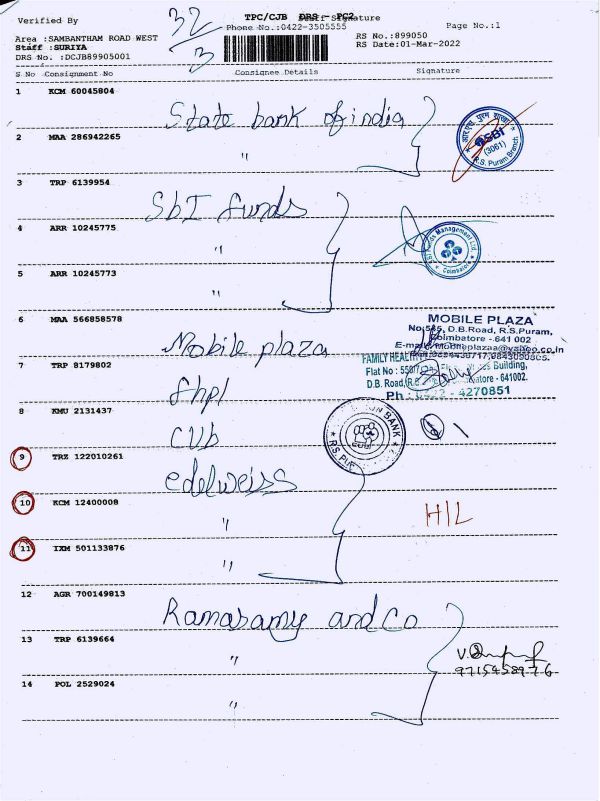 Verified By
TPC/CJB DRS PC2
Signature
Page No.:1
Phone No.:0422-3505555
32/3
RS No.:899050
RS Date:01-Mar-2022
Area :SAMBANTHAM ROAD WEST
Staff :SURIYA
DRS No. :DCJB89905001
S No Consignment No Consignee Details Signature
1 KCM 60045804
State bank of india
SBI
(3061)
R.S. Puram Branch
2 MAA 286942265
"
3 TRP 6139954
SbI funds
4 ARR 10245775
"
Funds Management Ltd.
Coimbatore
5 ARR 10245773
"
6 MAA 566858578
MOBILE PLAZA
No:585, D.B.Road, R.S.Puram,
Coimbatore - 641 002
Mobile plaza
7 TRP 8179802
FAMILY HEALTH
Flat No :
Building,
fhpl
D.B. Road,
- 641002.
Ph : 0422 - 4270851
8 KMU 2131437
CUb
UNION BANK
CUB
R.S. PUR
9 TRZ 122010261
edelweiss
10 KCM 12400008
"
H/L
11 IXM 501133876
"
12 AGR 700149813
Ramasamy and Co
13 TRP 6139664
"
9715458976
14 POL 2529024
"